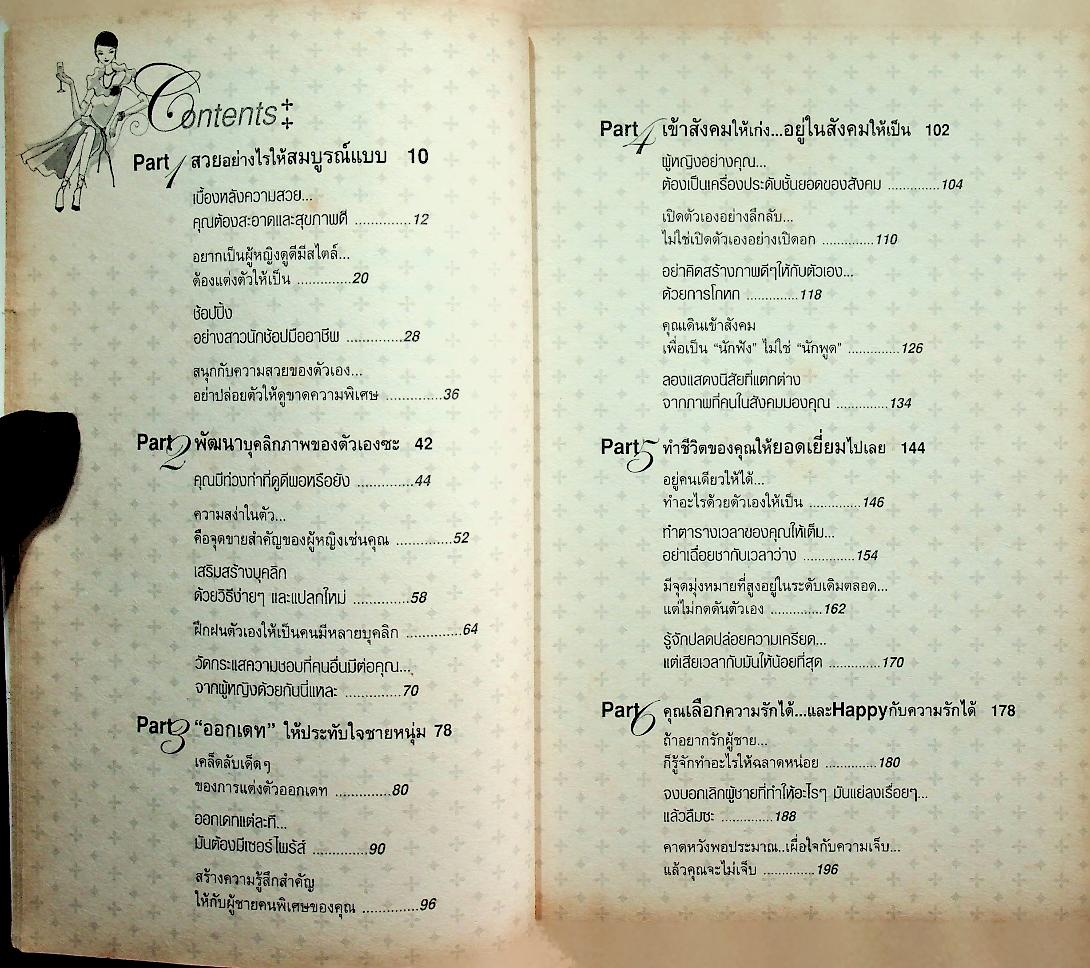 Contents
Part 1 สวยอย่างไรให้สมบูรณ์แบบ 10
เบื้องหลังความสวย...
คุณต้องสะอาดและสุขภาพดี ..............12
อยากเป็นผู้หญิงดูดีมีสไตล์...
ต้องแต่งตัวให้เป็น ..............20
ช้อปปิ้ง
อย่างสาวนักช้อปมืออาชีพ ..............28
สนุกกับความสวยของตัวเอง...
อย่าปล่อยตัวให้ดูขาดความพิเศษ ..............36
Part 2 พัฒนาบุคลิกภาพของตัวเองซะ 42
คุณมีท่วงท่าที่ดูดีพอหรือยัง ..............44
ความสง่าในตัว...
คือจุดขายสำคัญของผู้หญิงเช่นคุณ ..............52
เสริมสร้างบุคลิก
ด้วยวิธีง่ายๆ และแปลกใหม่ ..............58
ฝึกฝนตัวเองให้เป็นคนมีหลายบุคลิก ..............64
วัดกระแสความชอบที่คนอื่นมีต่อคุณ...
จากผู้หญิงด้วยกันนี่แหละ ..............70
Part 3 “ออกเดท” ให้ประทับใจชายหนุ่ม 78
เคล็ดลับเด็ดๆ
ของการแต่งตัวออกเดท ..............80
ออกเดทแต่ละที...
มันต้องมีเซอร์ไพร้ส์ ..............90
สร้างความรู้สึกสำคัญ
ให้กับผู้ชายคนพิเศษของคุณ ..............96
Part 4 เข้าสังคมให้เก่ง...อยู่ในสังคมให้เป็น 102
ผู้หญิงอย่างคุณ...
ต้องเป็นเครื่องประดับชั้นยอดของสังคม .............104
เปิดตัวเองอย่างลึกลับ...
ไม่ใช่เปิดตัวเองอย่างเปิดอก .............110
อย่าคิดสร้างภาพดีๆให้กับตัวเอง...
ด้วยการโกหก .............118
คุณเดินเข้าสังคม
เพื่อเป็น “นักฟัง” ไม่ใช่ “นักพูด” .............126
ลองแสดงนิสัยที่แตกต่าง
จากภาพที่คนในสังคมมองคุณ .............134
Part 5 ทำชีวิตของคุณให้ยอดเยี่ยมไปเลย 144
อยู่คนเดียวให้ได้...
ทำอะไรด้วยตัวเองให้เป็น .............146
ทำตารางเวลาของคุณให้เต็ม...
อย่าเฉื่อยชากับเวลาว่าง .............154
มีจุดมุ่งหมายที่สูงอยู่ในระดับเดิมตลอด...
แต่ไม่กดดันตัวเอง .............162
รู้จักปลดปล่อยความเครียด...
แต่เสียเวลากับมันให้น้อยที่สุด .............170
Part 6 คุณเลือกความรักได้...และHappyกับความรักได้ 178
ถ้าอยากรักผู้ชาย...
ก็รู้จักทำอะไรให้ฉลาดหน่อย .............180
จงบอกเลิกผู้ชายที่ทำให้อะไรๆ มันแย่ลงเรื่อยๆ...
แล้วลืมซะ .............188
คาดหวังพอประมาณ..เผื่อใจกับความเจ็บ...
แล้วคุณจะไม่เจ็บ .............196